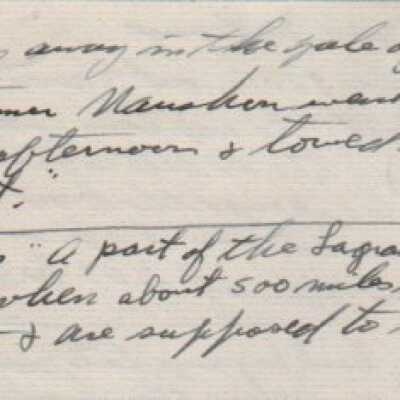 away in the gale
Naushon
afternoon & towed
t."
" A part of the
when about 500 miles
& are supposed to